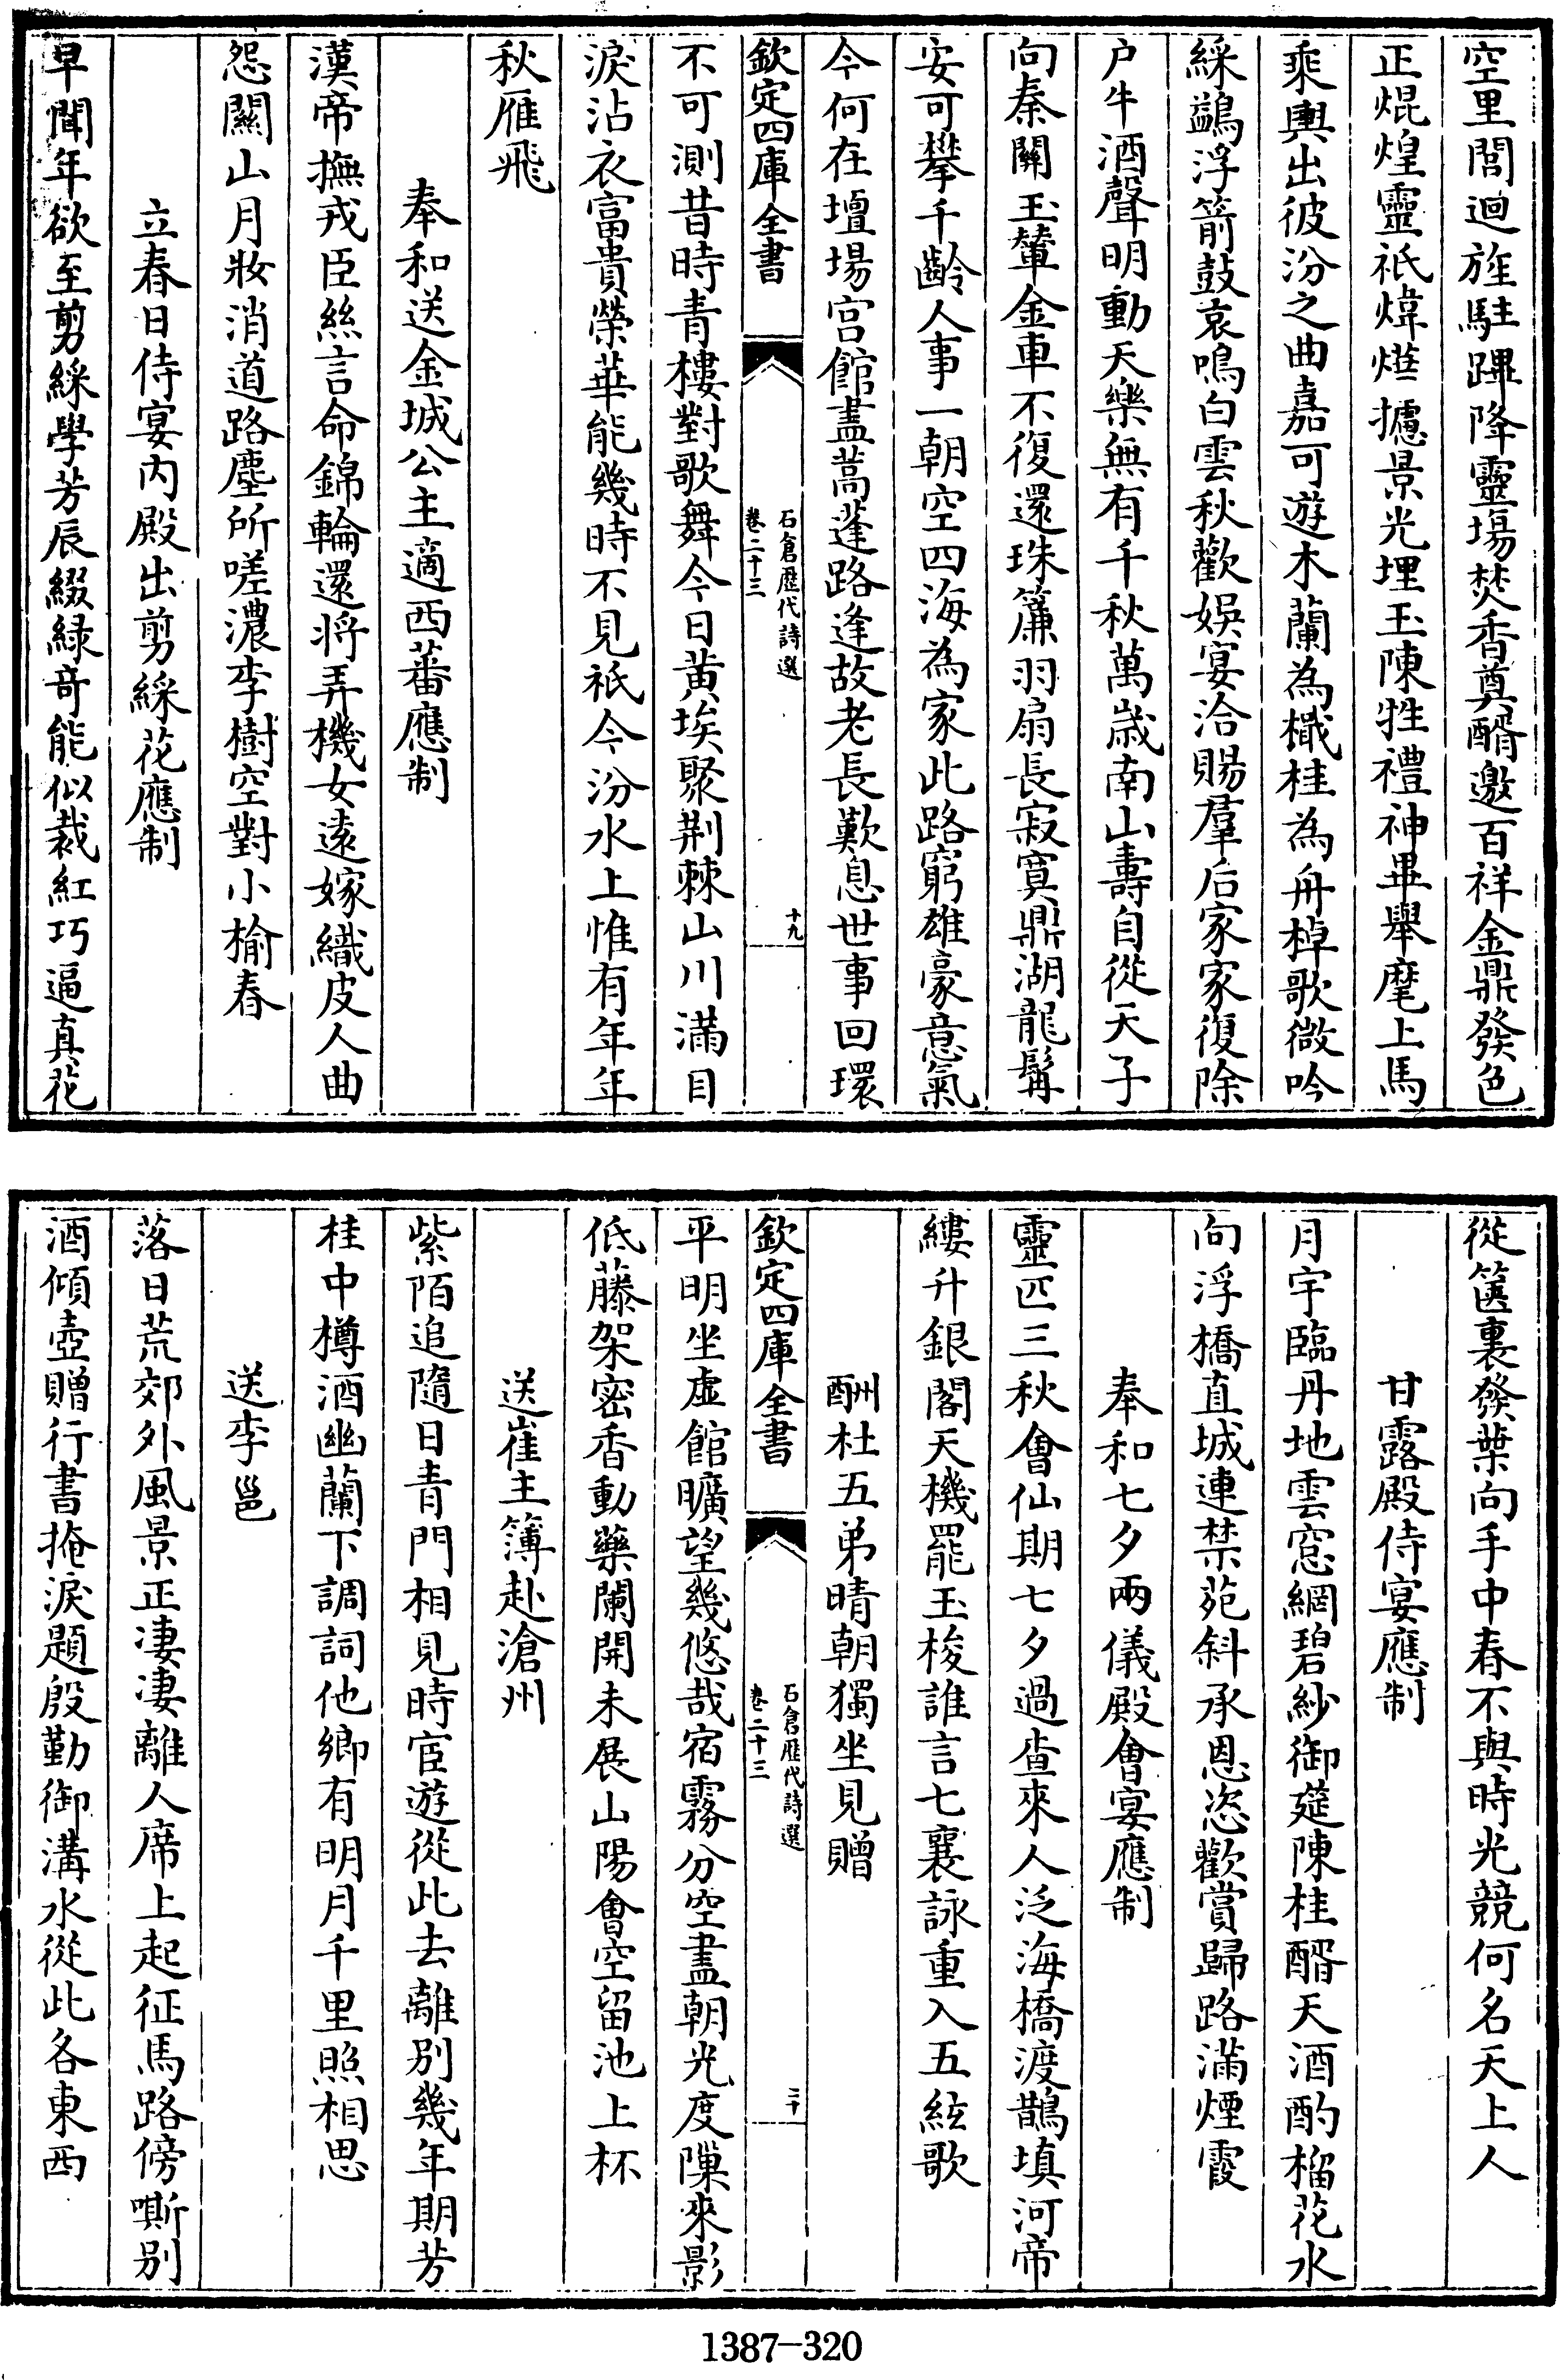 空里閭迴旌駐蹕降靈場焚香奠醑邀百祥金鼎發色
正焜煌靈祇煒燁攄景光埋玉陳牲禮神畢舉麾上馬
乘輿出彼汾之曲嘉可遊木蘭為檝桂為舟棹歌微吟
綵鷁浮簫鼓哀鳴白雲秋歡娛宴洽賜羣后家家復除
户牛酒聲明動天樂無有千秋萬歲南山壽自從天子
向秦關玉輦金車不復還珠簾羽扇長寂寞鼎湖龍髯
安可攀千齡人事一朝空四海為家此路窮雄豪意氣
今何在壇場宫館盡蒿蓬路逢故老長歎息世事回環
欽定四庫全書
石倉歷代詩選
卷二十三
十九
不可測昔時青樓對歌舞今日黄埃聚荆棘山川滿目
淚沾衣富貴榮華能幾時不見祇今汾水上惟有年年
秋雁飛
奉和送金城公主適西蕃應制
漢帝撫戎臣絲言命錦輪還將弄機女遠嫁織皮人曲
怨關山月妝消道路塵所嗟濃李樹空對小榆春
立春日侍宴内殿出剪綵花應制
早聞年欲至剪綵學芳辰綴緑奇能似裁紅巧逼真花
從篋裏發葉向手中春不與時光競何名天上人
甘露殿侍宴應制
月宇臨丹地雲窻網碧紗御筵陳桂醑天酒酌榴花水
向浮橋直城連禁苑斜承恩恣歡賞歸路滿煙霞
奉和七夕兩儀殿會宴應制
靈匹三秋會仙期七夕過查來人泛海橋渡鵲填河帝
縷升銀閣天機罷玉梭誰言七襄詠重入五絃歌
酬杜五弟晴朝獨坐見贈
欽定四庫全書
石倉歷代詩選
卷二十三
二十
平明坐虚館曠望幾悠哉宿霧分空盡朝光度隟來影
低藤架密香動藥闌開未展山陽會空留池上杯
送崔主簿赴滄州
紫陌追隨日青門相見時宦遊從此去離别幾年期芳
桂中樽酒幽蘭下調詞他鄉有明月千里照相思
送李邕
落日荒郊外風景正凄凄離人席上起征馬路傍嘶别
酒傾壺贈行書掩淚題殷勤御溝水從此各東西
1387-320